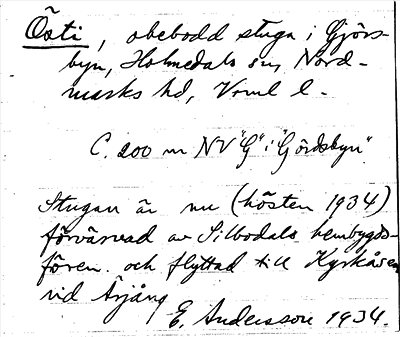 Östi, obebodd stuga i Gjörs-
byn, Holmedals sn, Nord-
marks hd, Vrml l.
C. 200 m NV "G" i "Gördsbyn"
Stugan är nu (hösten 1934)
förvärvad av Silbodals hembygds-
fören. och flyttad till Kyrkåsen
vid Årjäng
E. Andersson 1934.